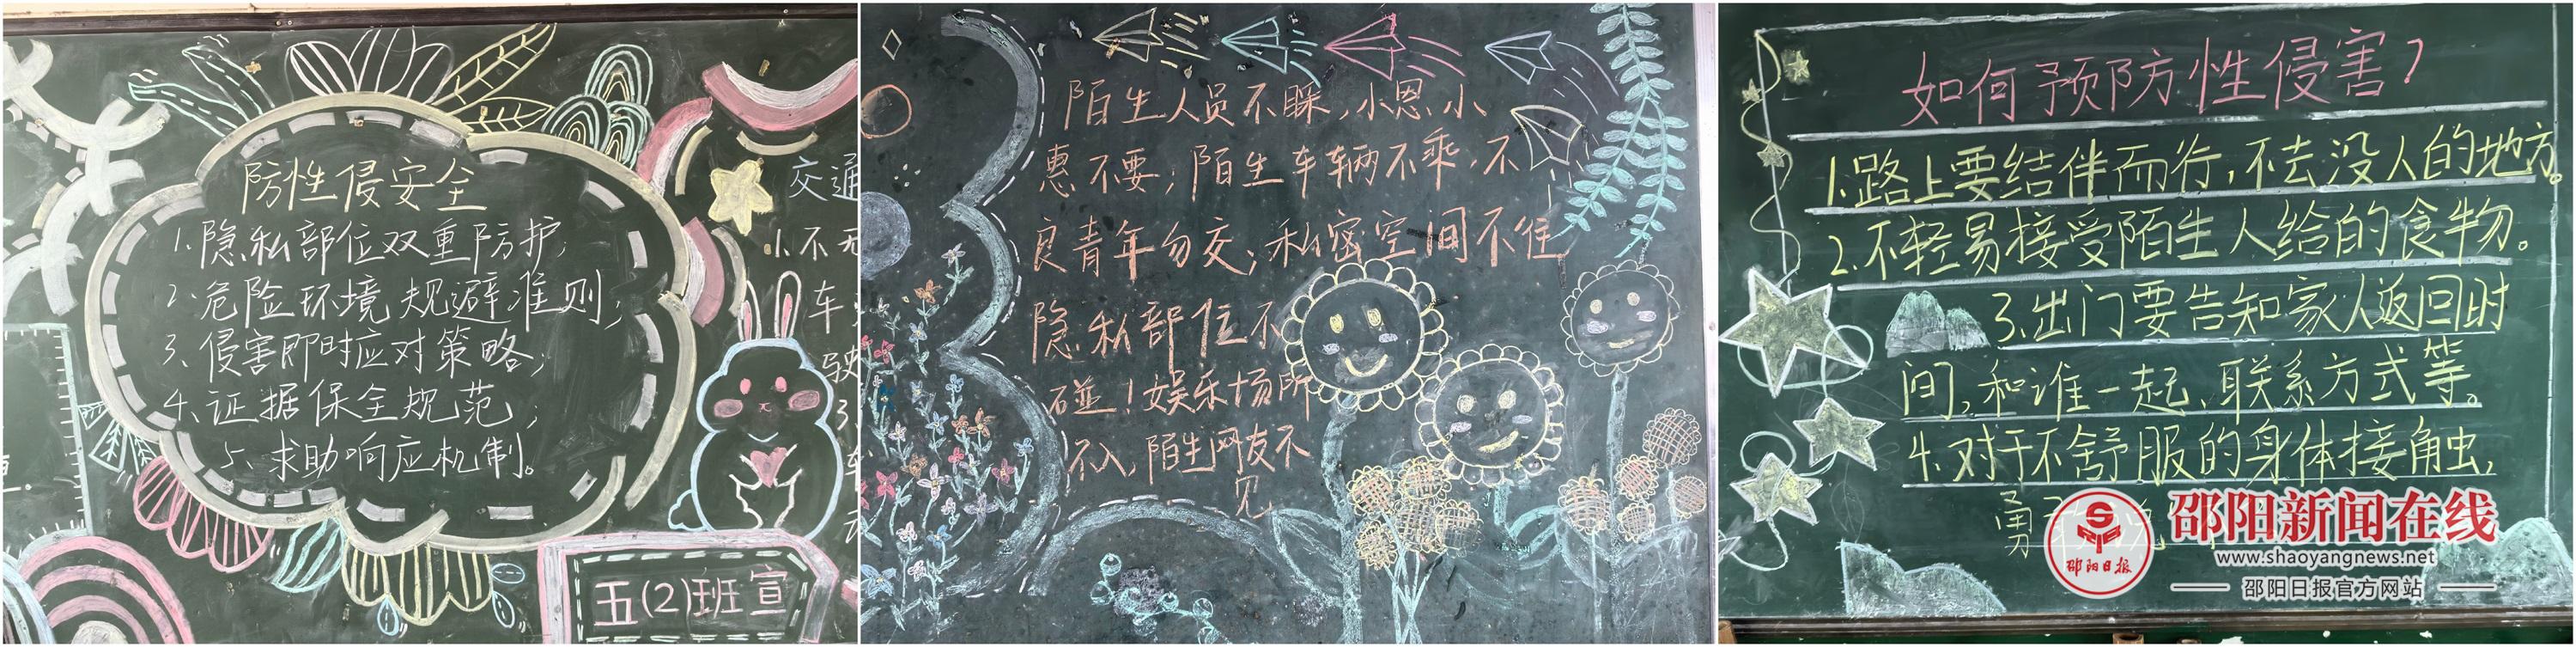 防性侵安全
1.隐私部位双重防护;
2.危险环境规避准则;
3.侵害即时应对策略;
4.证据保全规范;
5.求助响应机制。
交通
1.不
车
驶
3.
五(2)班宣
陌生人员不睬,小恩小
惠不要;陌生车辆不乘,不
良青年勿交;私密空间不准
隐私部位不
碰!娱乐场所
不入,陌生网友不
见
如何预防性侵害?
1.路上要结伴而行,不去没人的地方。
2.不轻易接受陌生人给的食物。
3.出门要告知家人返回时
间,和谁一起、联系方式等。
4.对于不舒服的身体接触,
勇
邵阳日报
邵阳新闻在线
www.shaoyangnews.net
邵阳日报官方网站